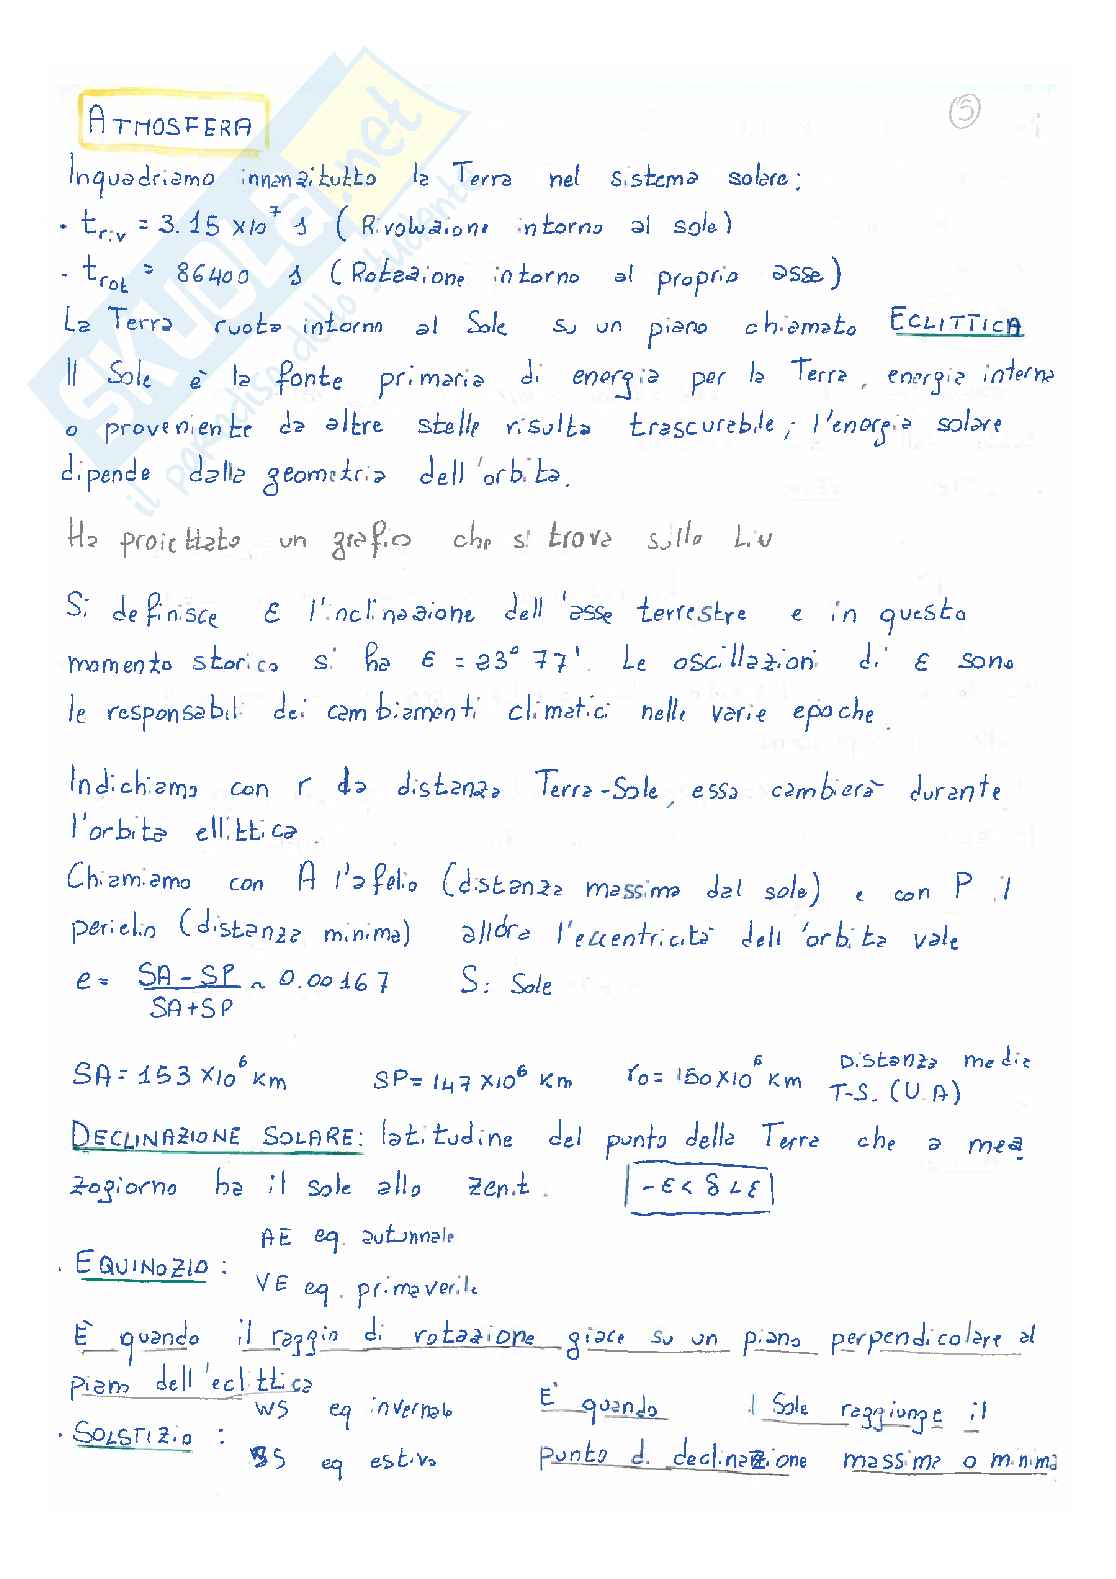 5
ATMOSFERA
Inquadriamo innanzitutto la Terra nel sistema solare:
· t riv = 3.15 x10^7 s ( Rivoluzione intorno al sole)
- t rot = 86400 s ( Rotazione intorno al proprio asse)
La Terra ruota intorno al Sole su un piano chiamato ECLITTICA
Il Sole è la fonte primaria di energia per la Terra, energia interna
o proveniente da altre stelle risulta trascurabile; l'energia solare
dipende dalla geometria dell'orbita.
Ha proiettato un grafico che si trova sulla Liv
Si definisce ε l'inclinazione dell'asse terrestre e in questo
momento storico si ha ε = 23° 77'. Le oscillazioni di ε sono
le responsabili dei cambiamenti climatici nelle varie epoche.
Indichiamo con r da distanza Terra-Sole, essa cambierà durante
l'orbita ellittica.
Chiamiamo con A l'afelio (distanza massima dal sole) e con P il
perielio (distanza minima) allora l'eccentricità dell'orbita vale
e = SA - SP / SA + SP ~ 0.00167 S: Sole
SA = 153 x10^6 Km SP = 147 x10^6 Km r0 = 150 x10^6 Km Distanza media
T-S. (U.A)
DECLINAZIONE SOLARE: latitudine del punto della Terra che a mez
zogiorno ha il sole allo zenit. -ε < δ < ε
AE eq. autunnale
· EQUINOZIO :
VE eq. primaverile
È quando il raggio di rotazione giace su un piano perpendicolare al
piano dell'eclittica
WS eq invernale È quando il Sole raggiunge il
· SOLSTIZIO :
SS eq estivo punto di declinazione massima o minima
SKUOLA.net
il paradiso dello studente